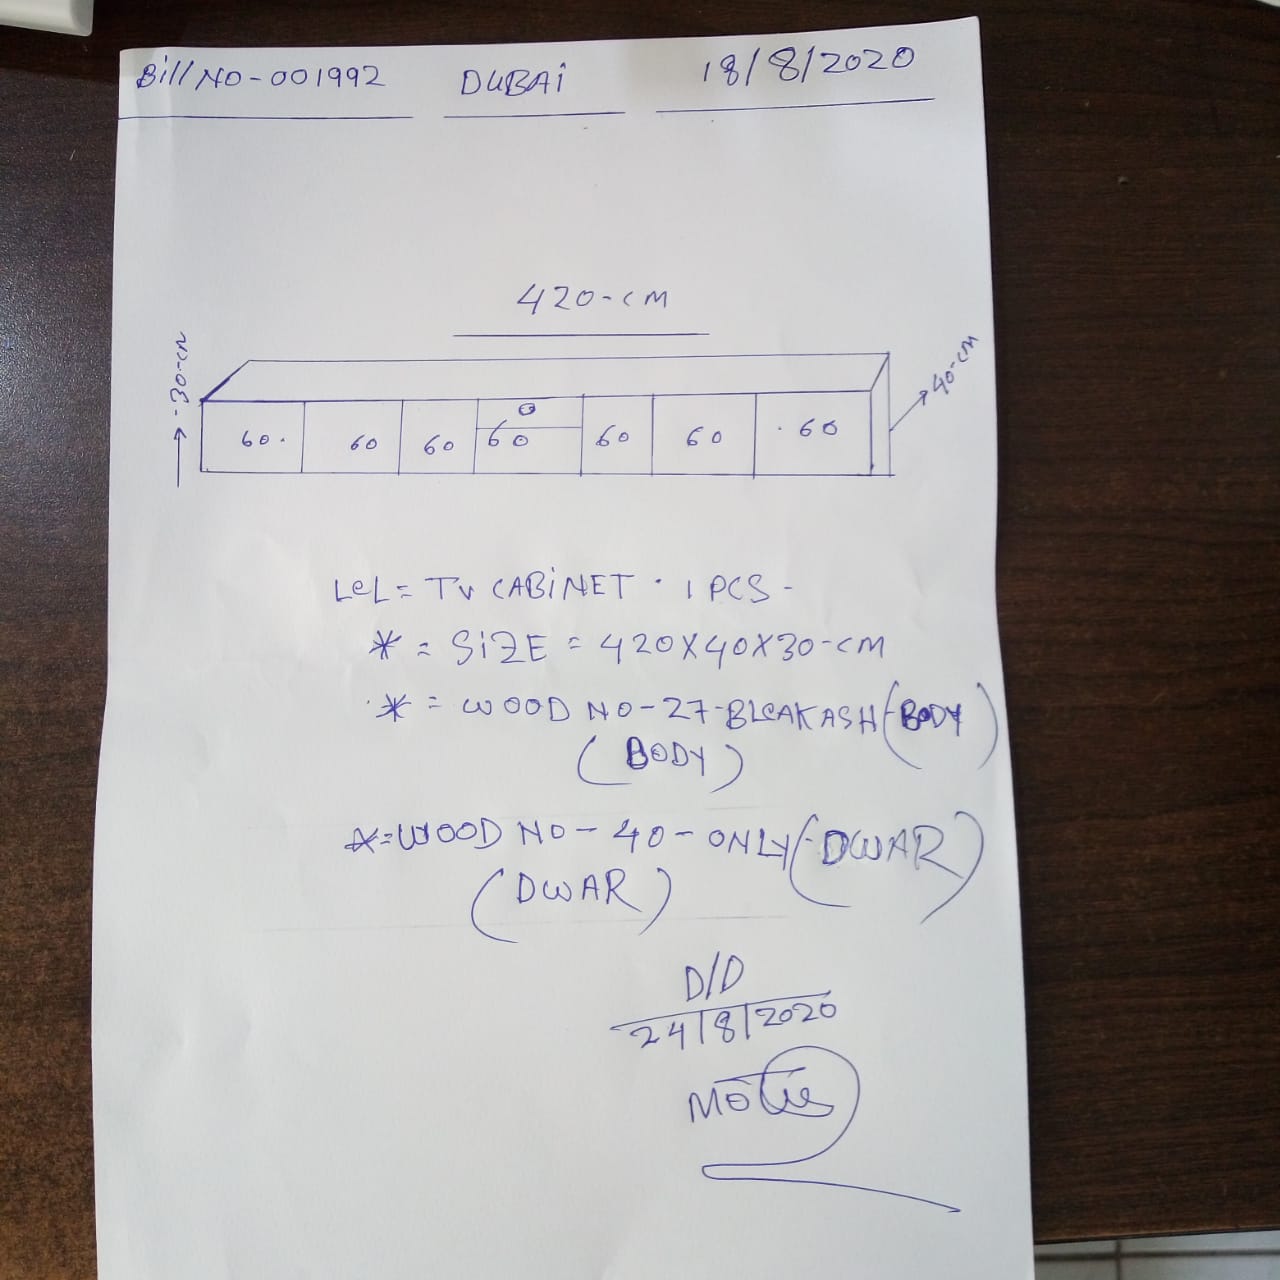 Bill NO-001992 DUBAi 18/8/2020
420-CM
30-CM
40-CM
60. 60 60 60 60 60 60
LeL = TV CABiNET . 1 PCS -
* = SiZE = 420X40X30-CM
* = WOOD NO-27-BLCAKASH (BODY)
(BODY)
*=WOOD NO-40-ONLY (-DWAR)
(DWAR)
D/D
24/8/2020